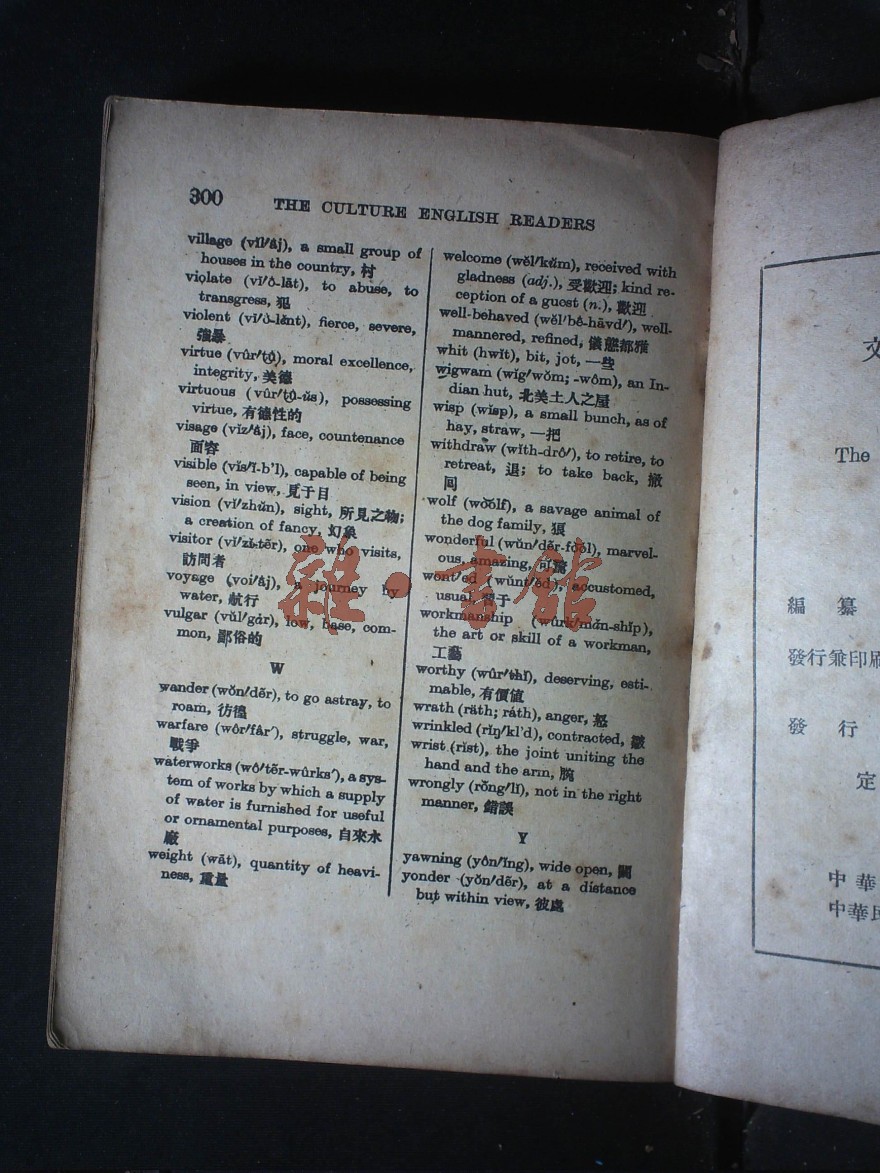 300
THE CULTURE ENGLISH READERS
village (vĭl′âj), a small group of
houses in the country, 村
violate (vī′ô-lāt), to abuse, to
transgress, 犯
violent (vī′ô-lĕnt), fierce, severe,
強暴
virtue (vûr′tû), moral excellence,
integrity, 美德
virtuous (vûr′tû-ŭs), possessing
virtue, 有德性的
visage (vĭz′âj), face, countenance
面容
visible (vĭs′ĭ-b'l), capable of being
seen, in view, 見于目
vision (vĭ′zhŭn), sight, 所見之物;
a creation of fancy, 幻象
visitor (vĭ′zĭ-tẽr), one who visits,
訪問者
voyage (voi′âj), a journey by
water, 航行
vulgar (vŭl′gȧr), low, base, com-
mon, 鄙俗的
W
wander (wŏn′dẽr), to go astray, to
roam, 彷徨
warfare (wôr′fâr′), struggle, war,
戰爭
waterworks (wô′tẽr-wûrks′), a sys-
tem of works by which a supply
of water is furnished for useful
or ornamental purposes, 自來水
廠
weight (wāt), quantity of heavi-
ness, 重量
welcome (wĕl′kŭm), received with
gladness (adj.), 受歡迎; kind re-
ception of a guest (n.), 歡迎
well-behaved (wĕl′bê-hāvd′), well-
mannered, refined, 儀態都雅
whit (hwĭt), bit, jot, 一些
wigwam (wĭg′wŏm; -wôm), an In-
dian hut, 北美土人之屋
wisp (wĭsp), a small bunch, as of
hay, straw, 一把
withdraw (wĭth-drô′), to retire, to
retreat, 退; to take back, 撤
回
wolf (wo͝olf), a savage animal of
the dog family, 狼
wonderful (wŭn′dẽr-fo͝ol), marvel-
ous, amazing, 可驚
wont′ed (wŭnt′ĕd), accustomed,
usual, 于
workmanship (wûrk′mȧn-shĭp),
the art or skill of a workman,
工藝
worthy (wûr′thĭ), deserving, esti-
mable, 有價值
wrath (răth; rȧth), anger, 怒
wrinkled (rĭŋ′kl'd), contracted, 皺
wrist (rĭst), the joint uniting the
hand and the arm, 腕
wrongly (rŏng′lĭ), not in the right
manner, 錯誤
Y
yawning (yôn′ĭng), wide open, 闊
yonder (yŏn′dẽr), at a distance
but within view, 彼處
雜·書館
文
The
編 纂
發行兼印刷
發 行
定
中華
中華民